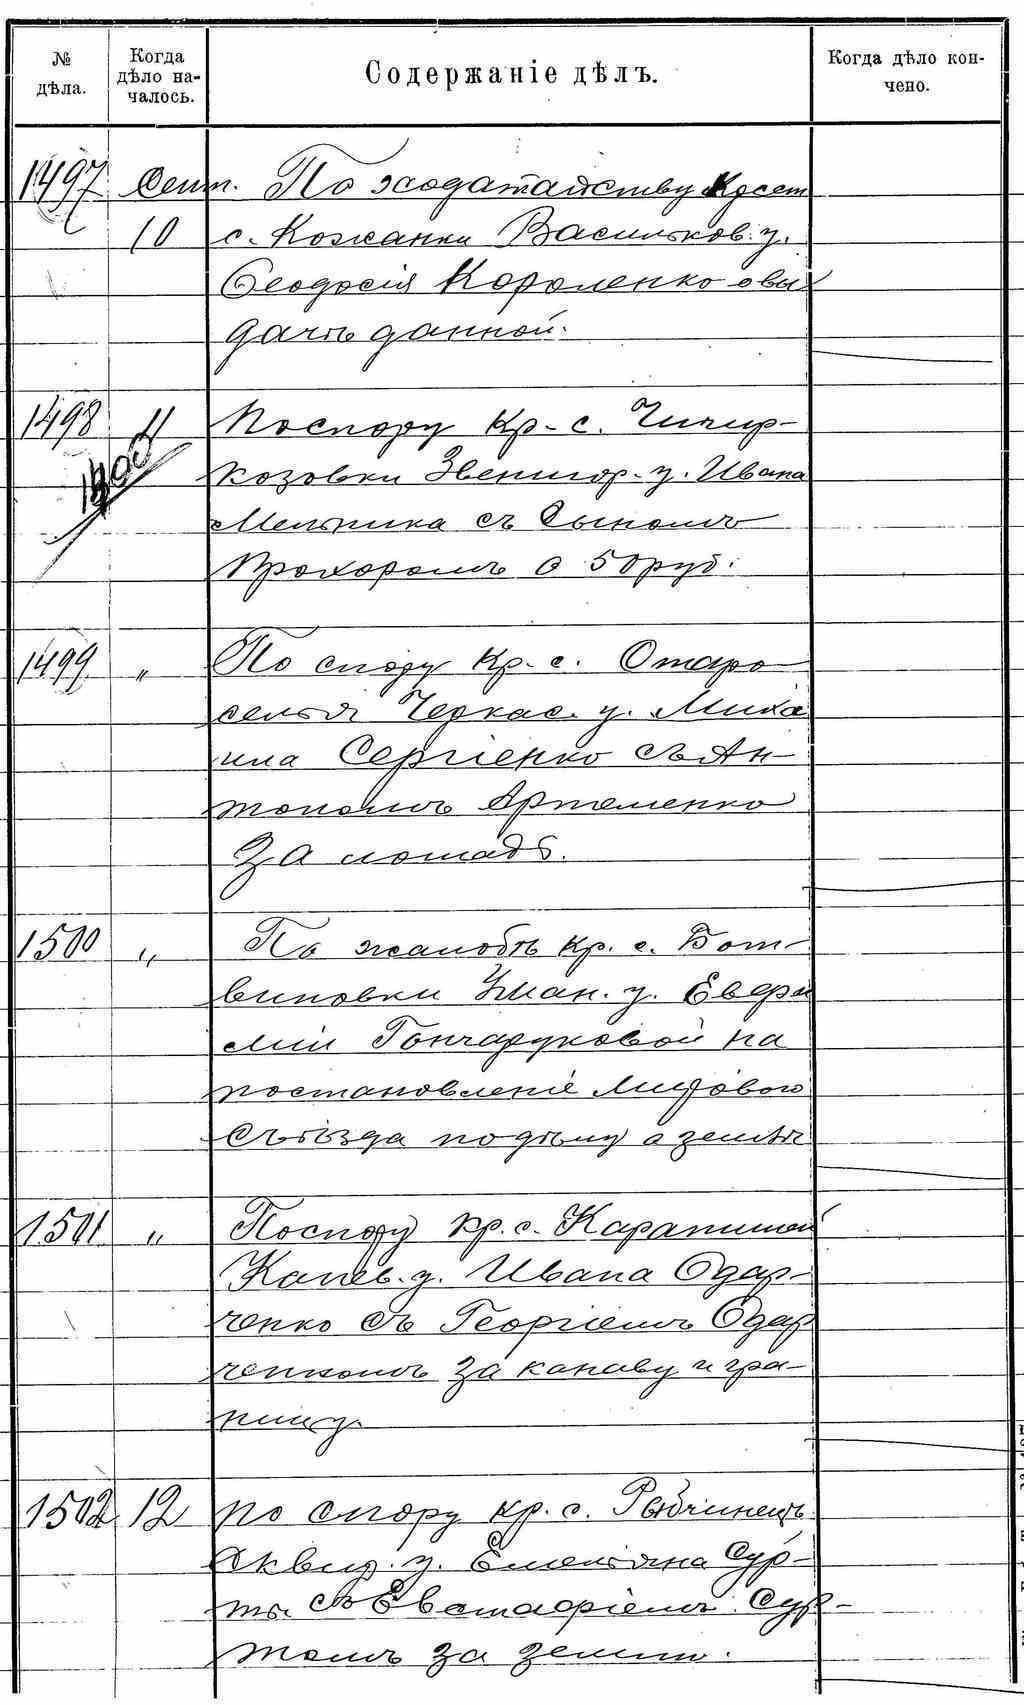 № дѣла. Когда дѣло на- чалось. Содержаніе дѣлъ. Когда дѣло кон- чено.
1497 Сент. По ходатайству Крест
10 с. Кожанки Васильков. у.
Ѳеодосія Короленко о вы
дачѣ данной.
1498 11 По спору Кр-с. Чичир-
козовки Звенигор-у. Ивана
1500
Мельника съ Сыномъ
Прохоромъ о 50 руб.
1499 „ По спору Кр-с. Старо
селья Черкас. у. Миха
ила Сергіенко съ Ан-
тономъ Артеменко
За лошадь.
1500 „ По жалобѣ кр. с. Бот-
виновки Уман. у. Евфи
міи Гончаруковой на
постановленіе Мирового
Съѣзда по дѣлу о землѣ
1501 „ По спору кр. с. Карапиши
Канев. у. Ивана Одар-
ченко съ Георгіемъ Одар
ченкомъ за канаву и гра-
ницу.
1502 12 по спору кр. с. Рыбчинецъ
Сквир. у. Емельяна Сур-
ты съ Евстафіемъ Сур-
томъ за землю.